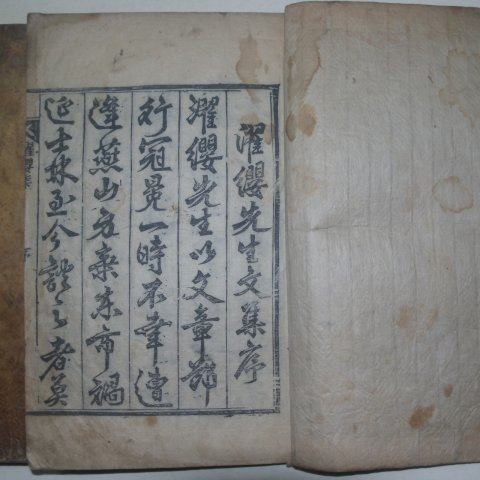 濯纓先生文集序
濯纓先生以文章節
行冠冕一時不幸遭
逢燕山方棄東市禍
延士林至今談之者莫
濯纓集
序